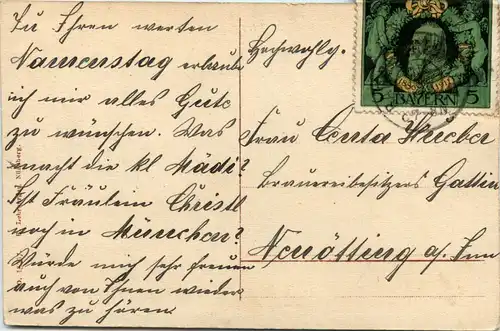 Zu Ihren werten
Namenstag erlaube
ich mir alles Gute
zu wünschen. Was
macht die kl Mädi?
Ist Fräulein Christl
noch in München?
Würde mich sehr freuen
auch von Ihnen wieder
was zu hören.
Hochwohlg.
Frau Centa
Brauereibesitzers Gattin
Neuötting a/Inn
5 BAYERN 5